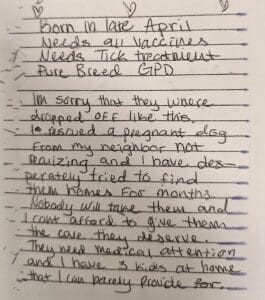 Born in late April
Needs all vaccines
Needs Tick treatment
Pure Breed GPD
Im sorry that they where
dropped off like this,
I rescued a pregnant dog
from my neighbor not
realizing and I have des-
perately tried to find
them homes for months.
Nobody will take them and
I cant afford to give them
the care they deserve.
They need medical attention
and I have 3 kids at home
that I can barely provide for.